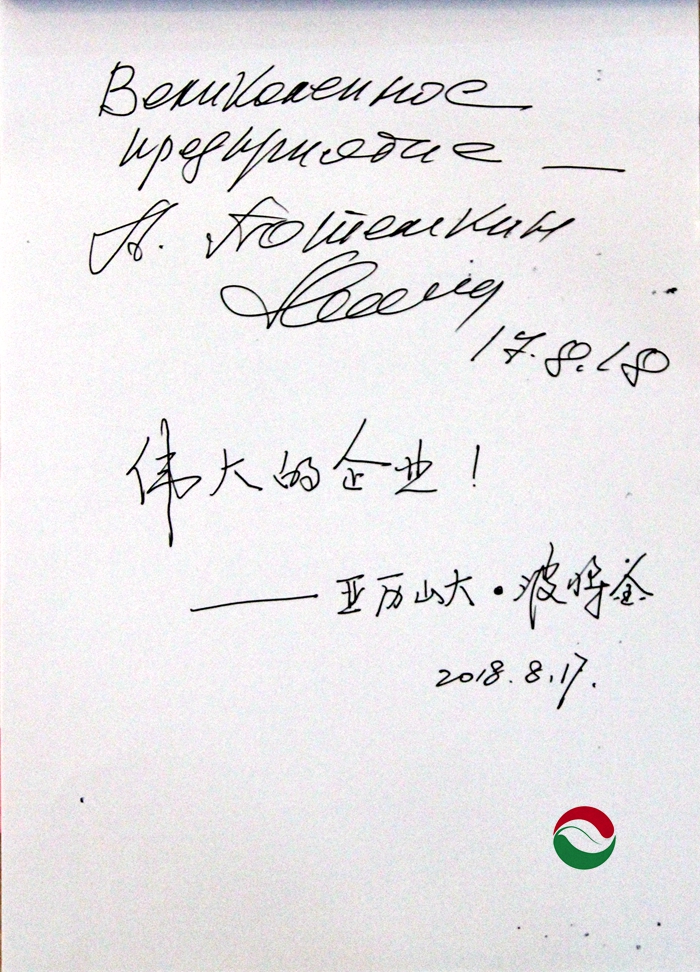 Великолепное
предприятие —
А. Потемкин
17.8.18
伟大的企业！
——亚历山大·波将金
2018.8.17.